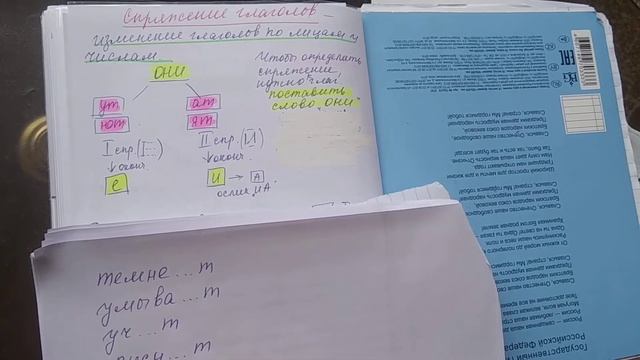 Спряжение глаголов –
изменение глаголов по лицам и
числам.
ОНИ
Чтобы определить
спряжение,
нужно глаг.
поставить
слово „они"
ут
ют
ат
ят
I спр. (Е)
II спр. (И)
↓ оконч.
↓ оконч.
е
и → А
ослик ИА
темне...т
умыва...т
уч...т
EAC
Государственный
Российской Федера
Россия — священная наша де
Могучая воля, великая слава —
Твоё достоянье на все време
Славься, Отечество наше св
Братских народов союз ве
Предками данная мудрость на
Славься, страна! Мы гордимс
От южных морей до полярного к
Раскинулись наши леса и поля.
Одна ты на свете! Одна ты такая
Хранимая Богом родная земля!
Славься, Отечество наше свободное,
Братских народов союз вековой,
Предками данная мудрость народная!
Славься, страна! Мы гордимся тобой!
Широкий простор для мечты и для жизни
Грядущие нам открывают года.
Нам силу даёт наша верность Отчизне.
Так было, так есть и так будет всегда!
Славься, Отечество наше свободное,
Братских народов союз вековой,
Предками данная мудрость народная!
Славься, страна! Мы гордимся тобой!